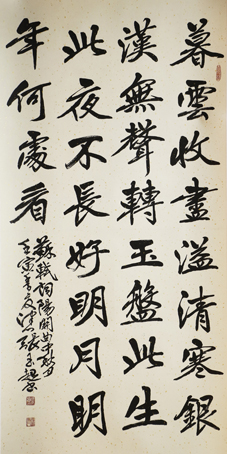 暮雲收盡溢清寒銀
漢無聲轉玉盤此生
此夜不長好明月明
年何處看
蘇軾陽關曲中秋
壬寅